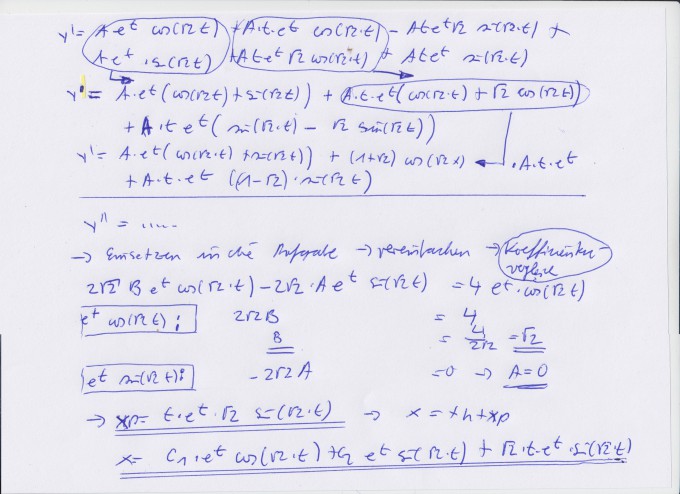 y' = A·e^t cos(√2 t) + A·t·e^t cos(√2·t) − A t e^t √2 sin(√2 t) +
A e^t · sin(√2 t) + A t e^t √2 cos(√2·t) + A t e^t sin(√2 t)
y' = A·e^t (cos(√2 t) + sin(√2 t)) + A·t·e^t (cos(√2·t) + √2 cos(√2 t))
+ A·t e^t (sin(√2·t) − √2 sin(√2 t))
y' = A·e^t (cos(√2·t) + sin(√2 t)) + (1+√2) cos(√2 x) ← ·A·t·e^t
+ A·t·e^t ((1−√2)·sin(√2 t)
y'' = .....
→ Einsetzen in die Aufgabe → vereinfachen → Koeffizienten-
vergleich
2√2 B e^t cos(√2·t) − 2√2·A e^t sin(√2 t) = 4 e^t·cos(√2 t)
e^t cos(√2 t): 2√2 B = 4
B = 4/2√2 = √2
e^t sin(√2 t): −2√2 A = 0 → A = 0
→ xp = t·e^t·√2 sin(√2·t) → x = xh + xp
x = C1·e^t cos(√2·t) + C2 e^t sin(√2·t) + √2·t·e^t·sin(√2·t)